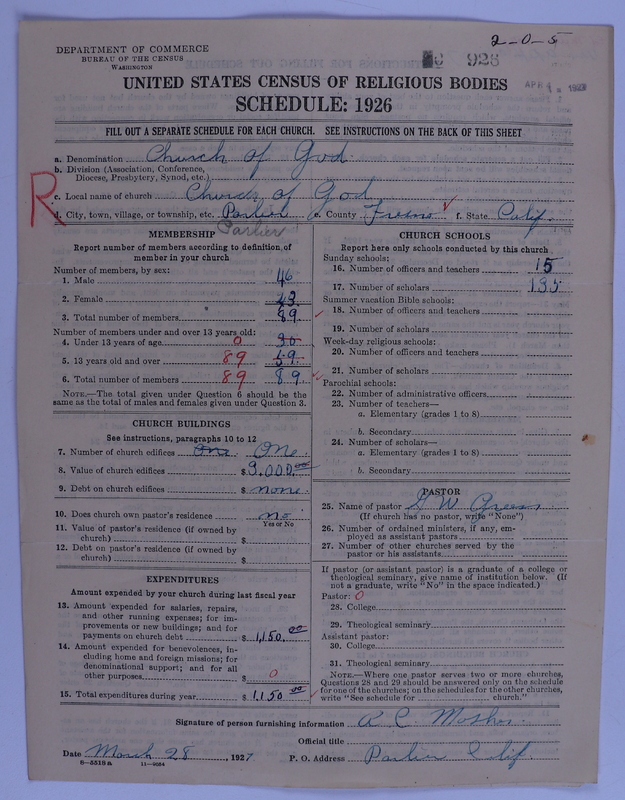 2-0-5
DEPARTMENT OF COMMERCE
BUREAU OF THE CENSUS
WASHINGTON
926
APR
UNITED STATES CENSUS OF RELIGIOUS BODIES
SCHEDULE: 1926
FILL OUT A SEPARATE SCHEDULE FOR EACH CHURCH. SEE INSTRUCTIONS ON THE BACK OF THIS SHEET
a. Denomination Church of God
b. Division (Association, Conference, Diocese, Presbytery, Synod, etc.)
R
c. Local name of church Church of God
d. City, town, village, or township, etc. Parlier e. County Fresno f. State Calif.
Parlier
MEMBERSHIP
Report number of members according to definition of
member in your church
Number of members, by sex:
1. Male 46
2. Female 43
3. Total number of members 89
Number of members under and over 13 years old:
4. Under 13 years of age 0 30
5. 13 years old and over 89 59
6. Total number of members 89 89
NOTE.—The total given under Question 6 should be
same as the total of males and females given under Question 3.
CHURCH BUILDINGS
See instructions, paragraphs 10 to 12
7. Number of church edifices One One
8. Value of church edifices $ 9,000.00
9. Debt on church edifices $ none
10. Does church own pastor's residence no
Yes or No
11. Value of pastor's residence (if owned by
church) $
12. Debt on pastor's residence (if owned by
church) $
EXPENDITURES
Amount expended by your church during last fiscal year
13. Amount expended for salaries, repairs,
and other running expenses; for im-
provements or new buildings; and for
payments on church debt $ 1,150.00
14. Amount expended for benevolences, in-
cluding home and foreign missions; for
denominational support; and for all
other purposes $ 0
15. Total expenditures during year $ 1,150.00
CHURCH SCHOOLS
Report here only schools conducted by this church
Sunday schools:
16. Number of officers and teachers 15
17. Number of scholars 135
Summer vacation Bible schools:
18. Number of officers and teachers
19. Number of scholars
Week-day religious schools:
20. Number of officers and teachers
21. Number of scholars
Parochial schools:
22. Number of administrative officers
23. Number of teachers—
a. Elementary (grades 1 to 8)
b. Secondary
24. Number of scholars—
a. Elementary (grades 1 to 8)
b. Secondary
PASTOR
25. Name of pastor G W Green
(If church has no pastor, write "None")
26. Number of ordained ministers, if any, em-
ployed as assistant pastors
27. Number of other churches served by the
pastor or his assistants
If pastor (or assistant pastor) is a graduate of a college or
theological seminary, give name of institution below. (If
not a graduate, write "No" in the space indicated.)
Pastor: 0
28. College
29. Theological seminary
Assistant pastor:
30. College
31. Theological seminary
NOTE.—Where one pastor serves two or more churches,
Questions 28 and 29 should be answered only on the schedule
for one of the churches; on the schedules for the other churches,
write "See schedule for church."
Signature of person furnishing information A. C.
Official title
Date March 28, 1927 P. O. Address Parlier Calif.
8-5518a 11-9884